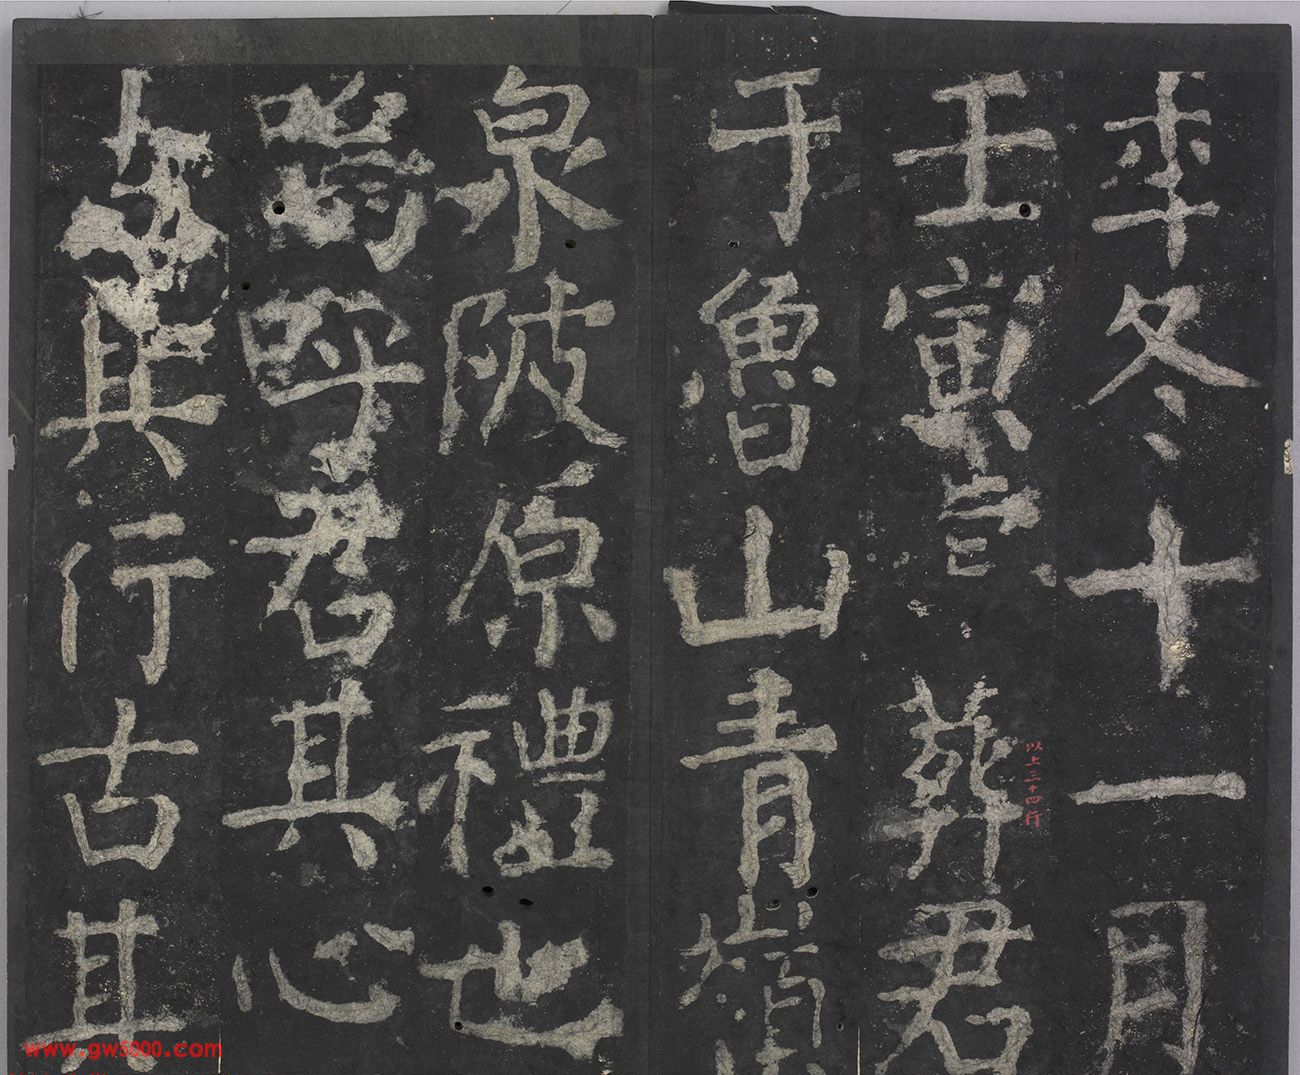 年冬十一月
壬寅葬君
以上三十四行
于魯山青嶺
泉陂原禮也
嗚呼君其心
古其行古其
www.gw5000.com